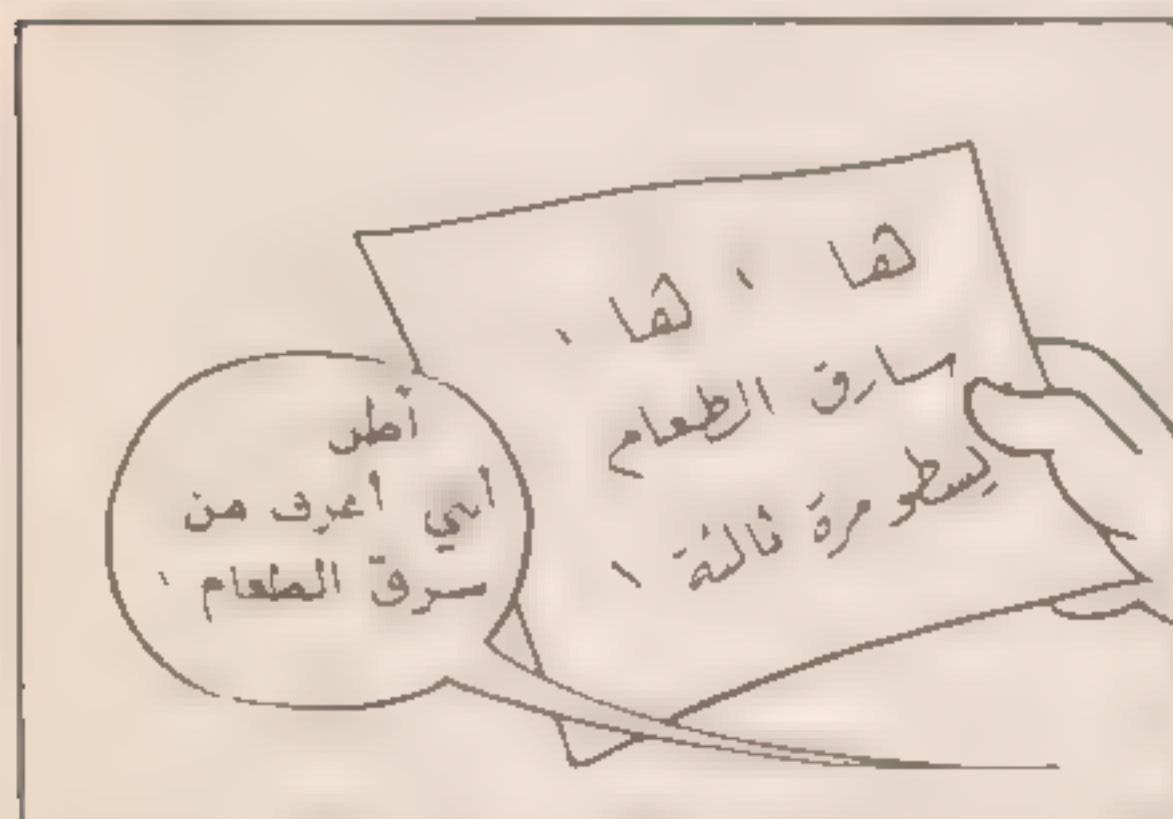 ها ! ها !
سارق الطعام
يسطو مرة ثالثة !
أظن
أني أعرف من
سرق الطعام !